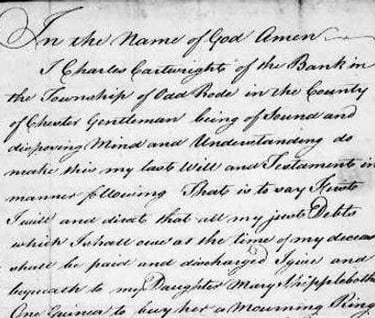 In the Name of God Amen
I Charles Cartwright of the Bank in
the Township of Odd Rode in the County
of Chester Gentleman being of Sound and
disposing Mind and Understanding do
make this my last Will and Testament in
manner following That is to say First
I will and direct that all my just Debts
which I shall owe at the time of my deceas
shall be paid and discharged I give and
bequeath to my Daughter Mary
One Guinea to buy her a Mourning Ring